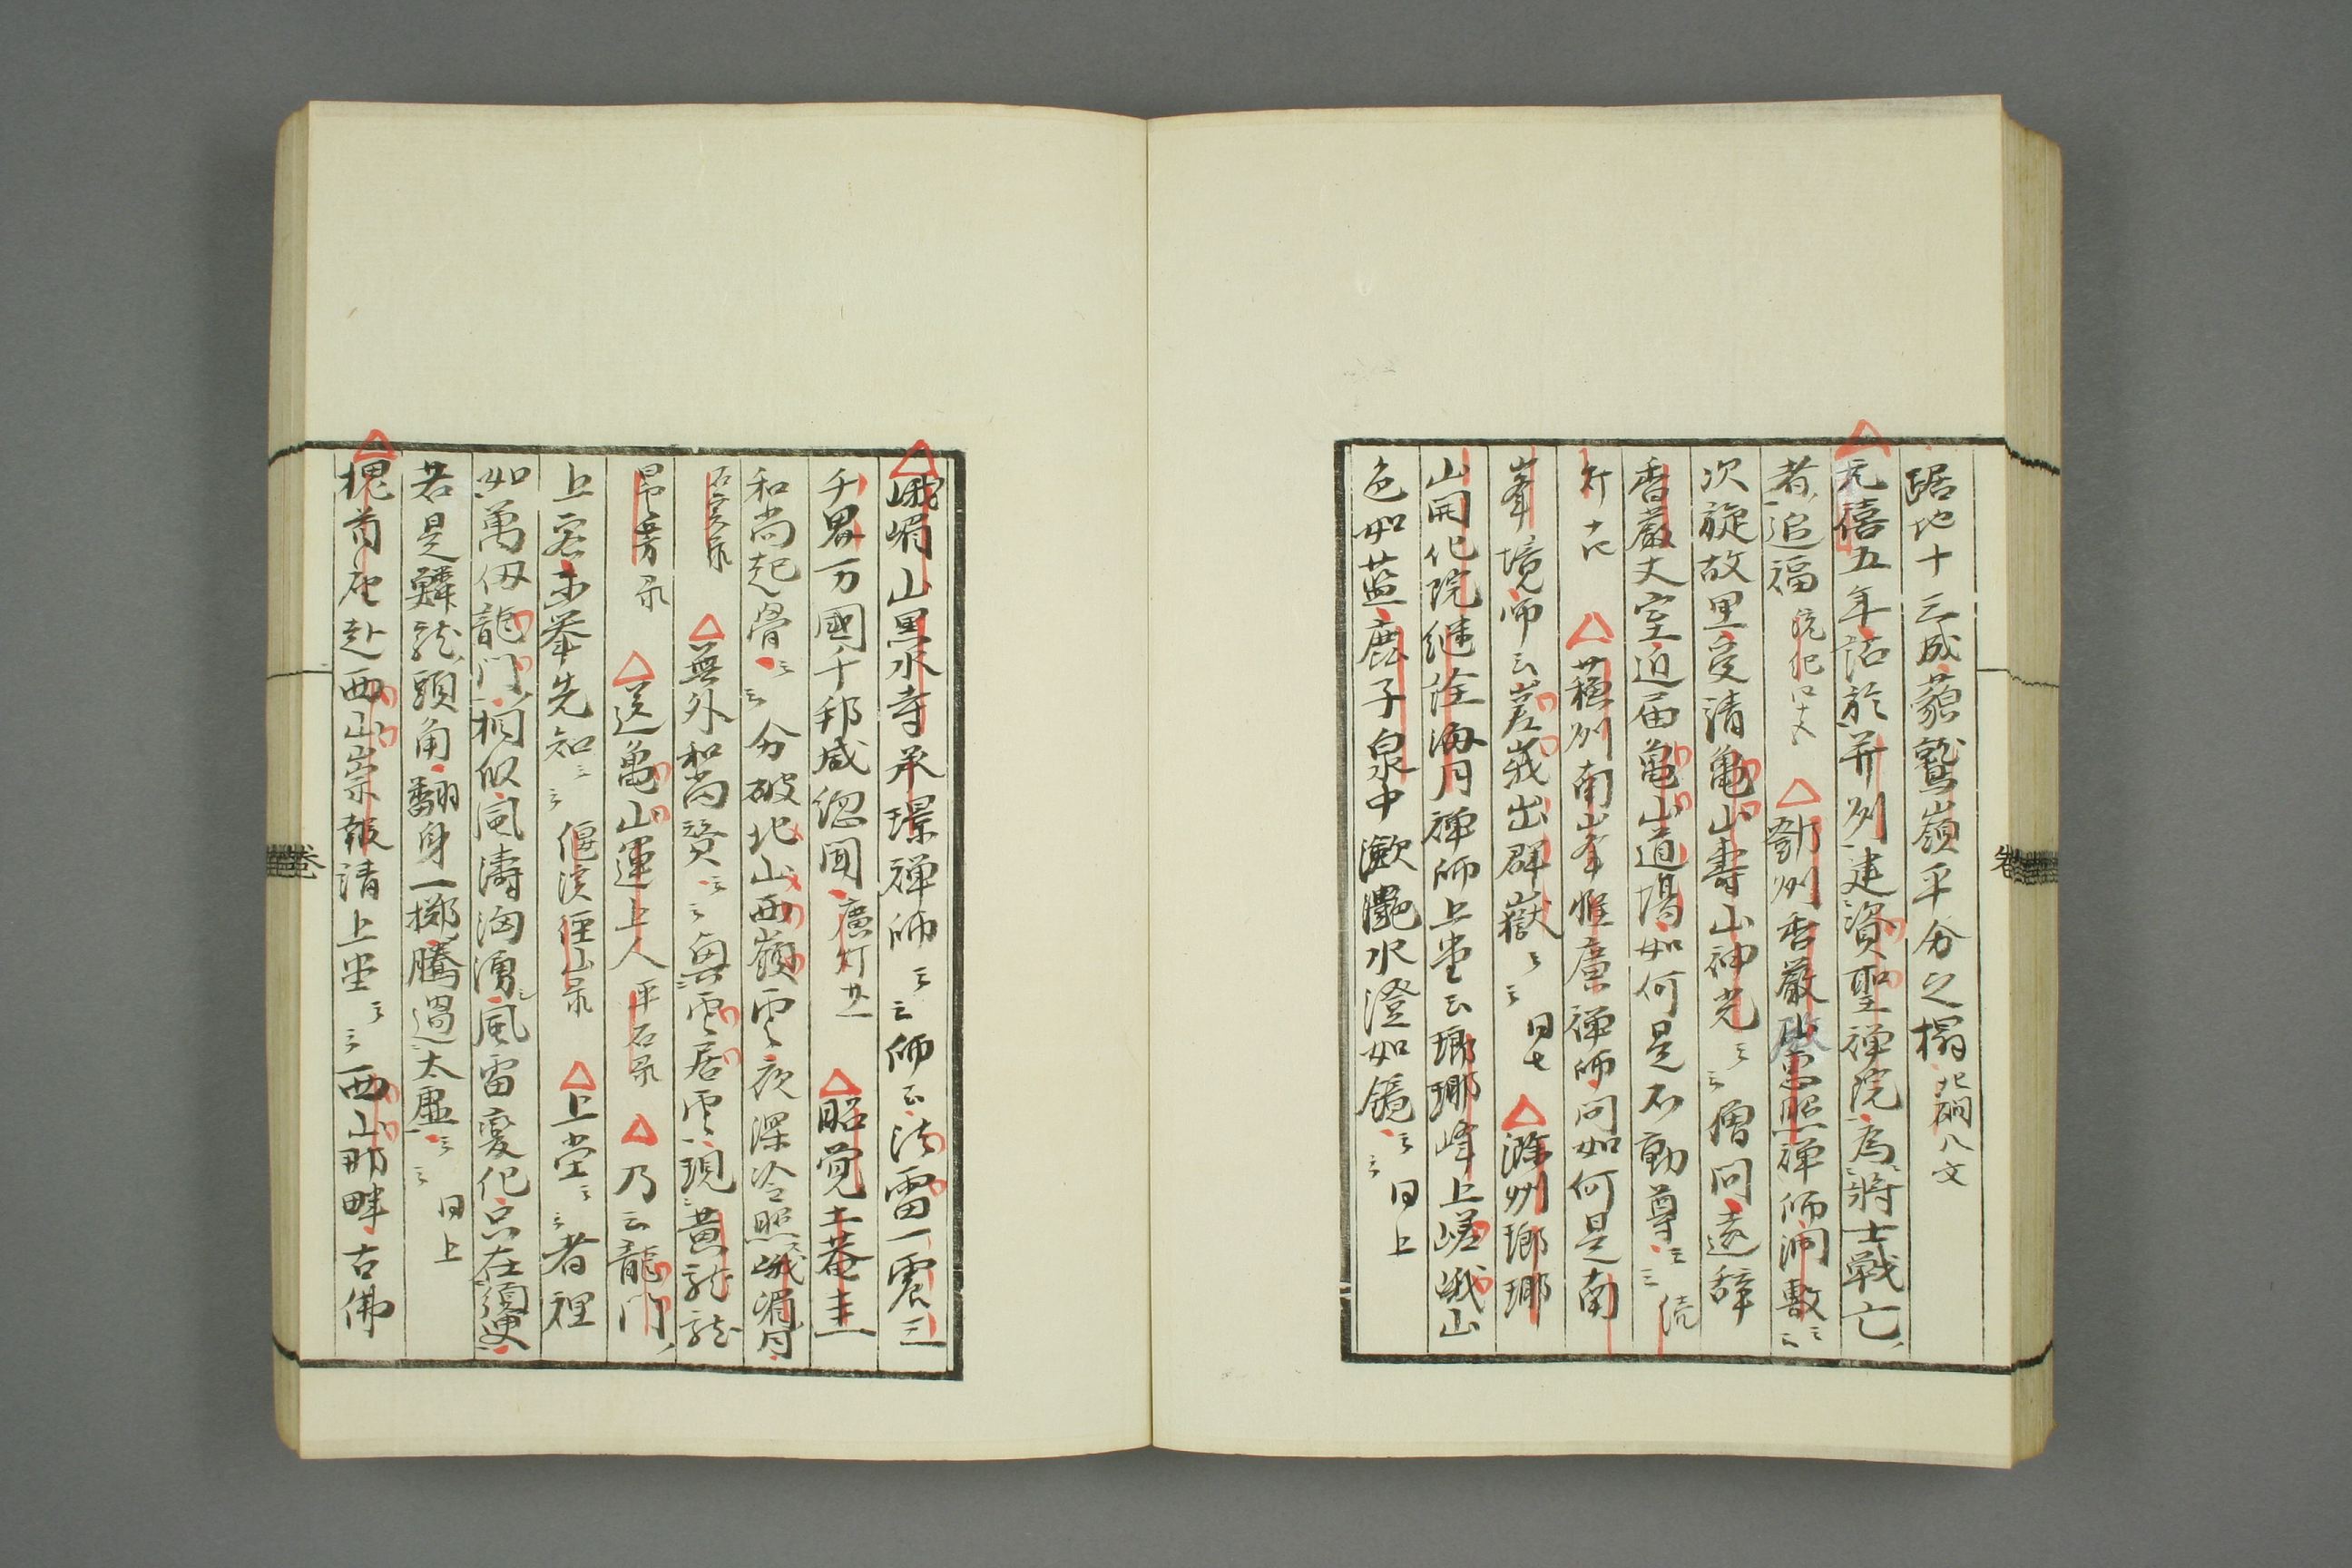 踞地十三成藐鷲嶺平分之榻北磵八文
元僖五年詔於并州建資聖禪院為將士戰亡
者追福 統紀四十六 鄧州香嚴智照禪師洞敷云云
次旋故里受請龜山壽山神光云云僧問遠辞
香嚴丈室近届龜山道場如何是不動尊云云続
灯十六 蘓州南峯惟廣禪師問如何是南
峯境師云嵳峩出群嶽云云同七 滁州瑯琊
山開化院継詮海月禪師上堂云瑯琊峰上嵯峨山
色如藍鹿子泉中瀲灔水澄如鏡云云同上
峨嵋山黒水寺承璟禪師云云師云法雷一震三
千界万國千邦咸緫聞廣灯廿一 昭覚土菴圭
和尚起骨云云分破北山西嶺雲夜深冷照峨嵋月
石室录 無外和尚賛云云與雲居雲現黄龍龍
畳芳录 送龜山運上人平石录 乃云龍門
上客未挙先知云云偃渓徑山录 上堂云云者裡
如萬仭龍門相似風濤洶湧風雷変化只在須臾
若是鱗龍頭角翻身一擲騰過太虚云云同上
槐首座赴西山崇報請上堂云云西山那畔古佛
卷